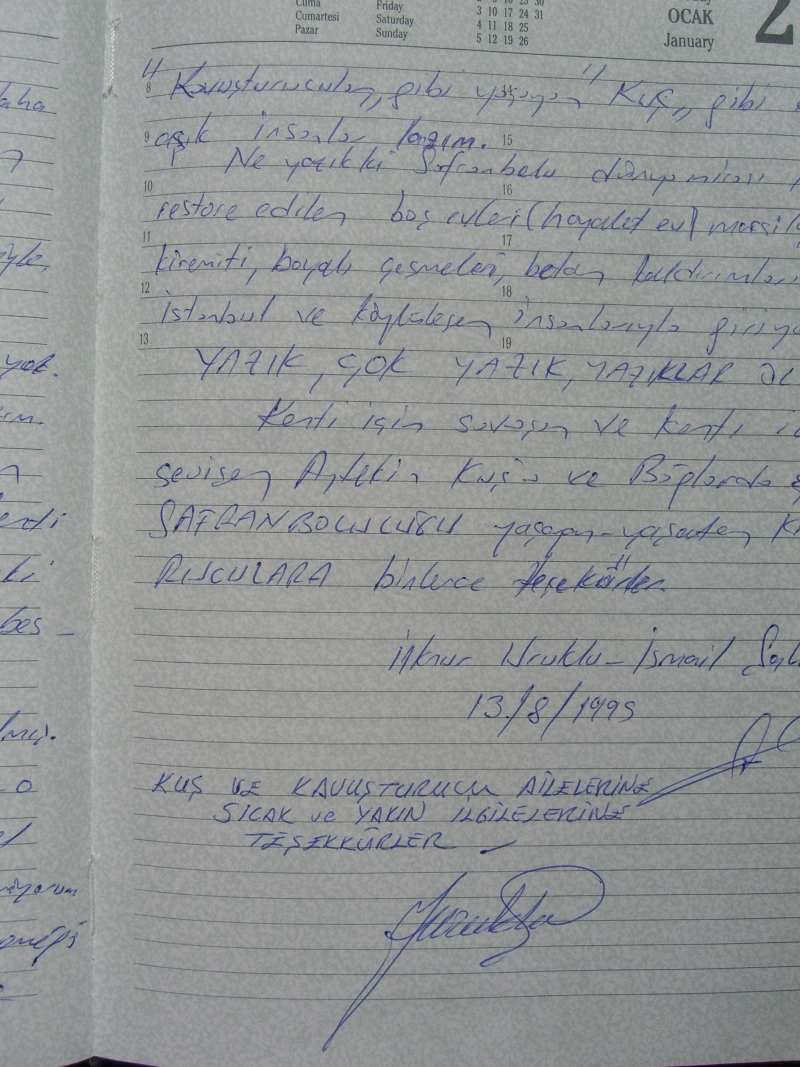 Cuma Friday
Cumartesi Saturday 3 10 17 24 31
Pazar Sunday 4 11 18 25
5 12 19 26
OCAK
January
2
8 "Kavuşturucular„ gibi yaşayan "Kuş„ gibi
9 aşık insanlar lazım. 15
Ne yazık ki Safranbolu dünya mirası
10 16
restore edilen boş evleri (hayalet ev)
11 17
kiremiti, boyalı çeşmeleri, beton kaldırımları
12 18
İstanbul ve köylüleşen insanlarıyla
13 19
YAZIK, ÇOK YAZIK, YAZIKLAR OL
Kenti için savaşan ve kenti
sevişen Aytekin Kuş'a ve
SAFRANBOLULUĞU yaşayan-yaşatan
RUCULARA binlerce teşekkürler.
İlknur Uruklu - İsmail
13/8/1995
KUŞ VE KAVUŞTURUCU AİLELERİNE
SICAK ve YAKIN İLGİLELERİNE
TEŞEKKÜRLER
aha
yok.
bes -
miş.